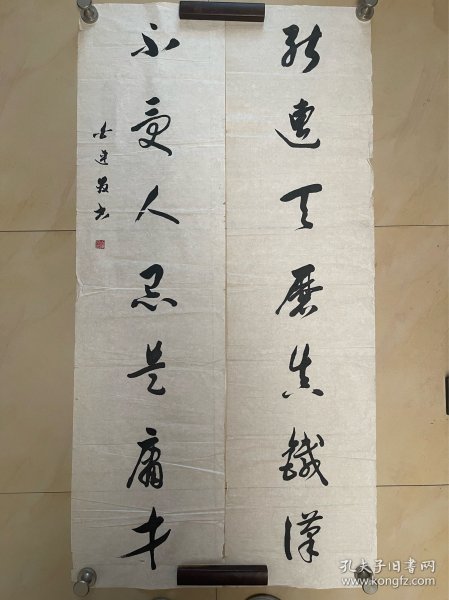 能遭天磨真鐵漢
不受人忌是庸才
孔夫子旧书网
www.kongfz.com